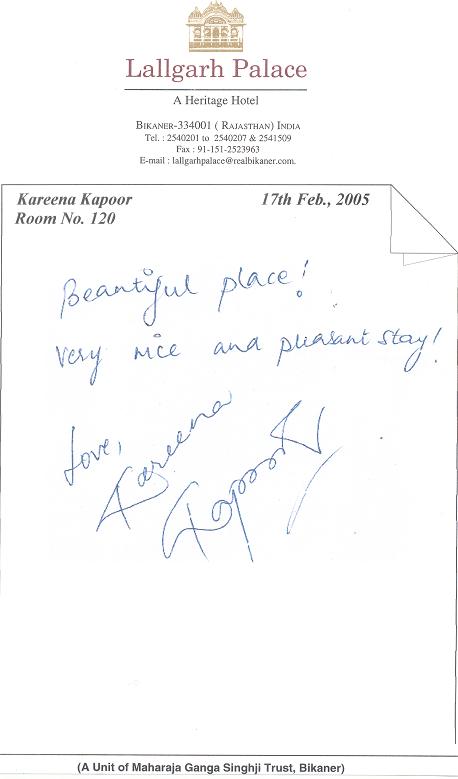 Lallgarh Palace
A Heritage Hotel
BIKANER-334001 ( RAJASTHAN) INDIA
Tel. : 2540201 to 2540207 & 2541509
Fax : 91-151-2523963
E-mail : lallgarhpalace@realbikaner.com.
Kareena Kapoor 17th Feb., 2005
Room No. 120
Beautiful place!
Very nice and pleasant stay!
Love,
Kareena
Kapoor
(A Unit of Maharaja Ganga Singhji Trust, Bikaner)